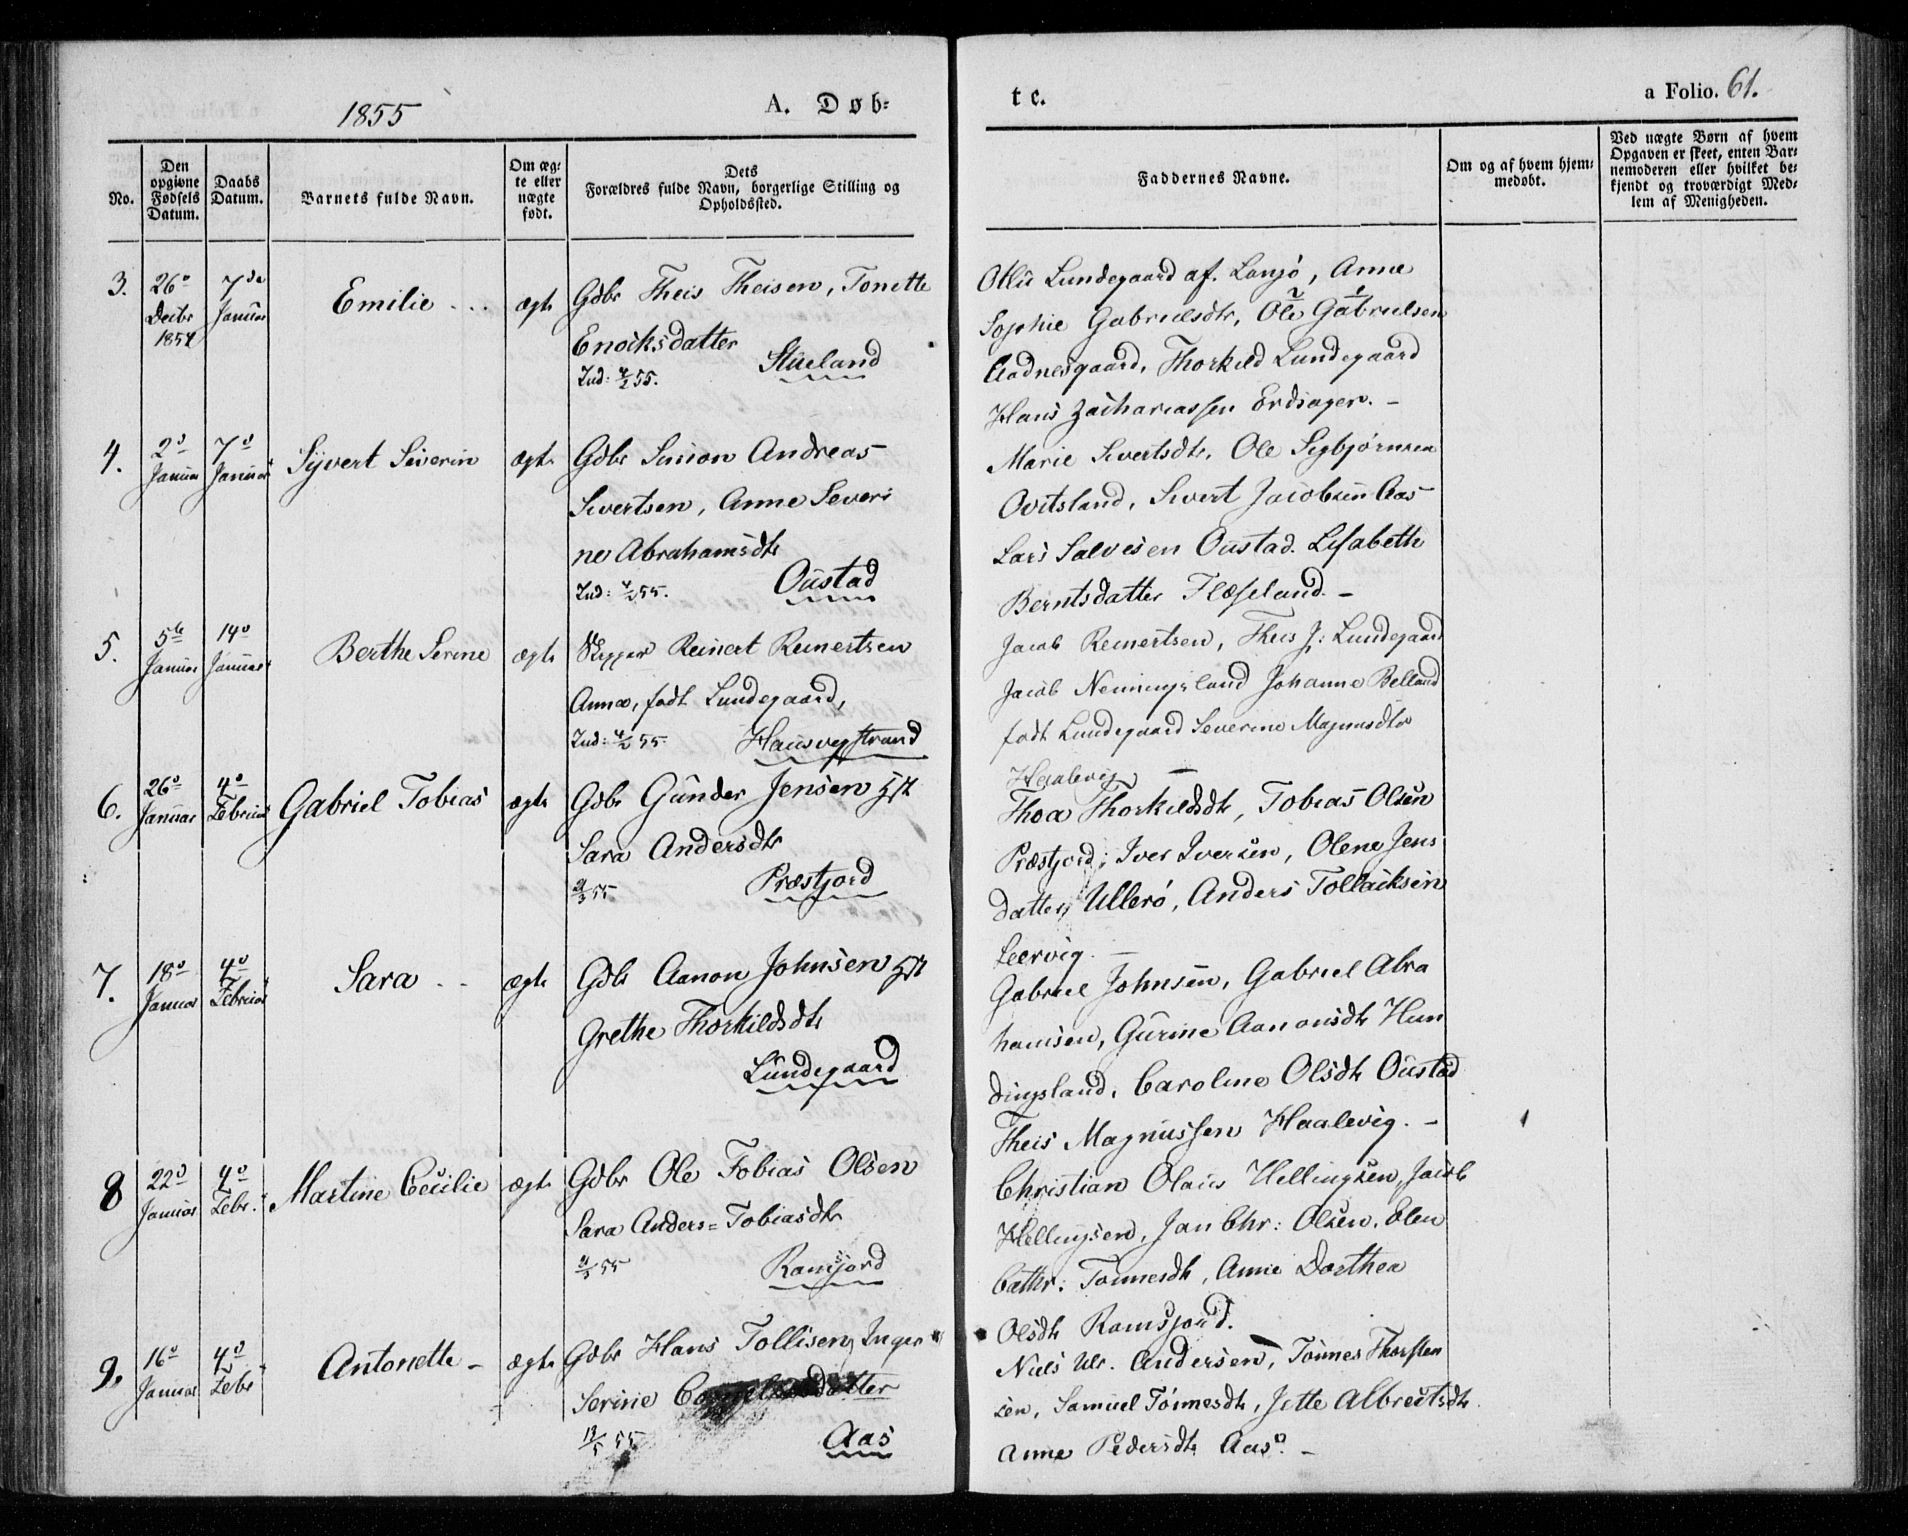 1855
A. Døb-
te.
a Folio. 61.
No.
Den opgivne Fødsels Datum.
Daabs Datum.
Barnets fulde Navn.
Om ægte eller nægte født.
Dets Forældres fulde Navn, borgerlige Stilling og Opholdssted.
Faddernes Navne.
Om og af hvem hjemmedøbt.
Ved nægte Børn af hvem Opgaven er skeet, enten Barnemoderen eller hvilket bekjendt og troværdigt Medlem af Menigheden.
3. 26de Decbr 1854 7de Januar Emilie ægte
Gdbr Theis Theisen, Tonette
Enocksdatter
Ind: 4/2 55. Stueland
Lundegaard af Lonjø, Anne
Sophie Gabrielsdtr, Ole Gabrielsen
Aadnesgaard, Thorkild Lundegaard
Hans Zachariassen
4. 2d Januar 7d Januar Syvert Severin ægte
Gdbr Simon Andreas
Sivertsen, Anne Severi
ne Abrahamsdtr
Ind: 4/2 55. Oustad
Marie Sivertsdtr, Ole Sigbjørnsen
Ovitsland, Sivert Jacobsen Aas
Lars Salvesen Oustad. Lisabeth
Berntsdatter Flæseland. -
5. 5te Januar 14d Januar Berthe Serine ægte
Skipper Reinert Reinertsen
Anna, født Lundegaard,
Ind: 4/2 55. Hausvigstrand
Jacob Reinertsen, Theis J: Lundegaard
Jacob Nenningsland Johanne Belland
født Lundegaard Severine Magnusdtr
Haalevig -
6. 26d Januar 4d Februar Gabriel Tobias ægte
Gdbr Gunder Jensen
Sara Andersdtr
55 Præstjord
Thoa Thorkildsdtr, Tobias Olsen
Præstjord, Iver Iversen, Olene Jens
datter, Ullerø, Anders Tollacksen
Leervig. -
7. 18d Januar 4d Februar Sara ægte
Gdbr Aanon Johnsen
Grethe Thorkildsdtr
Lundegaard
Gabriel Johnsen, Gabriel Abra
hamsen, Gurine Aanonsdtr Hun
dingsland, Caroline Olsdtr Oustad
Theis Magnussen Haalevig. -
8 22d Januar 4d Febr. Martine Cecilie ægte
Gdbr Ole Tobias Olsen
Sara Anders = Tobiasdtr
55 Ramsjord
Christian Olaus Hellingsen, Jacob
Hellingsen, Jan Chr: Olsen, Elen
Cathr: Tønnesdtr, Anne Dorthea
Olsdtr Ramsjord.
9. 16d Januar 4d Febr Antonette - ægte
Gdbr Hans Tollisen, Inger
Serine
55 Aas
Niels Ulr. Andersen, Tønnes Thorsten
sen, Samuel Tønnesdtr, Jette Albrectsdtr
Anne Pedersdtr Aas. -